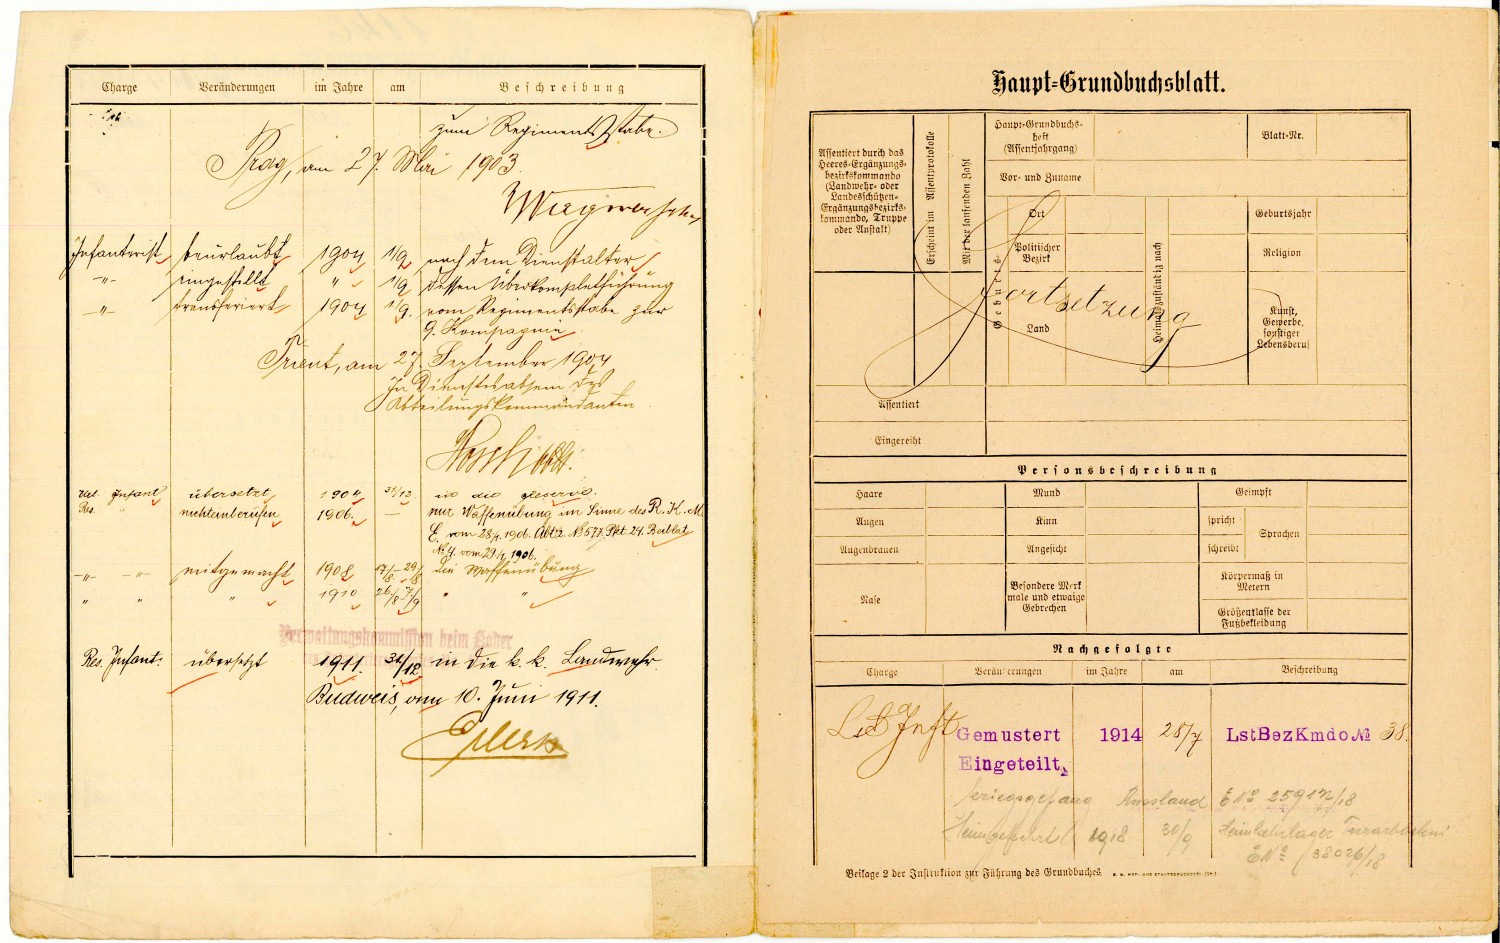 Charge Veränderungen im Jahre am Beschreibung
zum Regimentsstabe.
Prag, am 27. Mai 1903.
Infanterist beurlaubt 1904 1/9 nach dem Dienstalter
-"- eingestellt " 1/9 dessen Überkompletführung
-"- transferiert 1904 1/9. vom Regimentsstabe zur
9. Kompagnie.
Trient, am 27. September 1904
In Dienstesabsenz des
Abteilungskommandanten
Res. Infant übersetzt 1904 31/12 in die Reserve.
Res. " nichteinberufen 1906. — zur Waffenübung im Sinne des R. K. M.
E. vom 28/4. 1906. Abt. 2. No 577, Pkt. 24. Beiblat
No 4. vom 29/4 1906.
-"- -"- mitgemacht 1908 17/8.-29/8 die Waffenübung
" " " 1910 26/8-7/9 " "
Verwaltungskommission beim Kader
Res. Infant: übersetzt 1911. 31/12 in die k. k. Landwehr.
Budweis, am 10. Juni 1911.
Haupt-Grundbuchsblatt.
Assentiert durch das
Heeres-Ergänzungs-
bezirkskommando
(Landwehr- oder
Landesschützen-
Ergänzungsbezirks-
kommando, Truppe
oder Anstalt)
Erscheint im Assentprotokolle
Mit der laufenden Zahl
Haupt-Grundbuchs-
heft
(Assentjahrgang)
Blatt-Nr.
Vor- und Zuname
Geburts-
Ort
Politischer
Bezirk
Land
Heimatszuständig nach
Geburtsjahr
Religion
Kunst,
Gewerbe,
sonstiger
Lebensberuf
Fortsetzung
Assentiert
Eingereiht
Personsbeschreibung
Haare Mund Geimpft
Augen Kinn spricht Sprachen
Augenbrauen Angesicht schreibt
Nase
Besondere Merk
male und etwaige
Gebrechen
Körpermaß in
Metern
Größenklasse der
Fußbekleidung
Nachgefolgte
Charge Veränderungen im Jahre am Beschreibung
Lst Inft Gemustert 1914 28/7 LstBezKmdo No 38.
Eingeteilt
kriegsgefang Russland E No 25917/18
Heimgekehrt 1918 30/9 Heimkehrlager
E No 38026/18
Beilage 2 der Instruktion zur Führung des Grundbuches